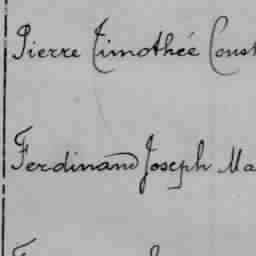 Pierre Timotheé Const
Ferdinand Joseph Ma